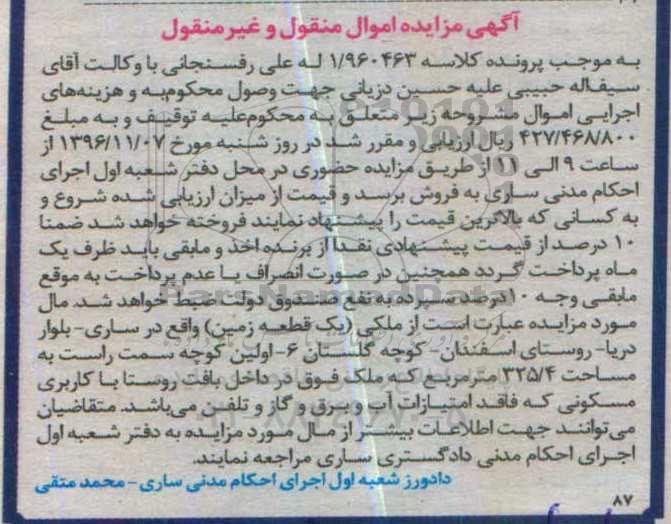 آگهی مزایده اموال منقول و غیر منقول
به موجب پرونده کلاسه ۱/۹۶۰۴۶۳ له علی رفسنجانی با وکالت آقای
سیف‌اله حبیبی علیه حسین دزیانی جهت وصول محکوم‌به و هزینه‌های
اجرایی اموال مشروحه زیر متعلق به محکوم‌علیه توقیف و به مبلغ
۴۲۷/۴۶۸/۸۰۰ ریال ارزیابی و مقرر شد در روز شنبه مورخ ۱۳۹۶/۱۱/۰۷ از
ساعت ۹ الی ۱۱ از طریق مزایده حضوری در محل دفتر شعبه اول اجرای
احکام مدنی ساری به فروش برسد و قیمت از میزان ارزیابی شده شروع و
به کسانی که بالاترین قیمت را پیشنهاد نمایند فروخته خواهد شد ضمنا
۱۰ درصد از قیمت پیشنهادی نقدا از برنده اخذ و مابقی باید ظرف یک
ماه پرداخت گردد همچنین در صورت انصراف یا عدم پرداخت به موقع
مابقی وجه ۱۰درصد سپرده به نفع صندوق دولت ضبط خواهد شد. مال
مورد مزایده عبارت است از ملکی (یک قطعه زمین) واقع در ساری- بلوار
دریا- روستای اسفندان- کوچه گلستان ۶- اولین کوچه سمت راست به
مساحت ۳۲۵/۴ مترمربع که ملک فوق در داخل بافت روستا با کاربری
مسکونی که فاقد امتیازات آب و برق و گاز و تلفن می‌باشد. متقاضیان
می‌توانند جهت اطلاعات بیشتر از مال مورد مزایده به دفتر شعبه اول
اجرای احکام مدنی دادگستری ساری مراجعه نمایند.
دادورز شعبه اول اجرای احکام مدنی ساری - محمد متقی
۸۷